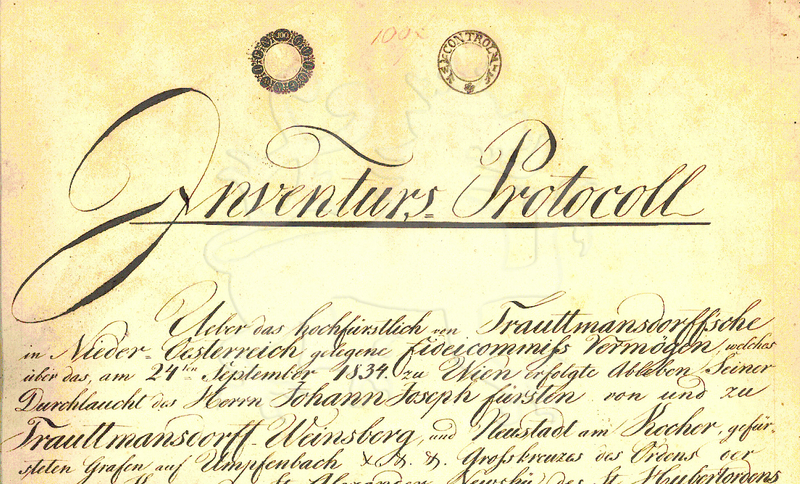 100
100x
CONTROL
Inventurs= Protocoll
Ueber das hochfürstlich von Trauttmansdorffsche
in Nieder=Oesterreich gelegene Fideicommiß Vermögen, welches
über das, am 24ten September 1834. zu Wien erfolgte Ableben Seiner
Durchlaucht des Herrn Johann Joseph Fürsten von und zu
Trauttmansdorff=Weinsberg, und Neustadt am Kocher, gefür-
steten Grafen auf Umpfenbach &. &. &. Großkreuzes des Ordens der
St. Alexander Newsky des St. Hubertordens